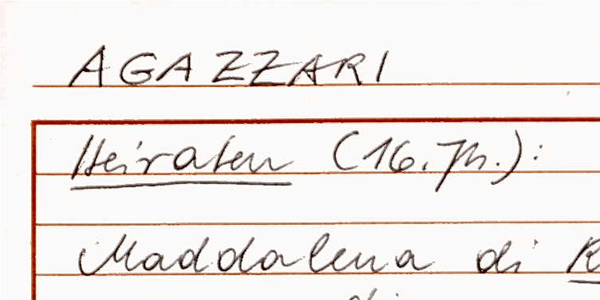 AGAZZARI
Heiraten (16. Jh.):
Maddalena di R
di